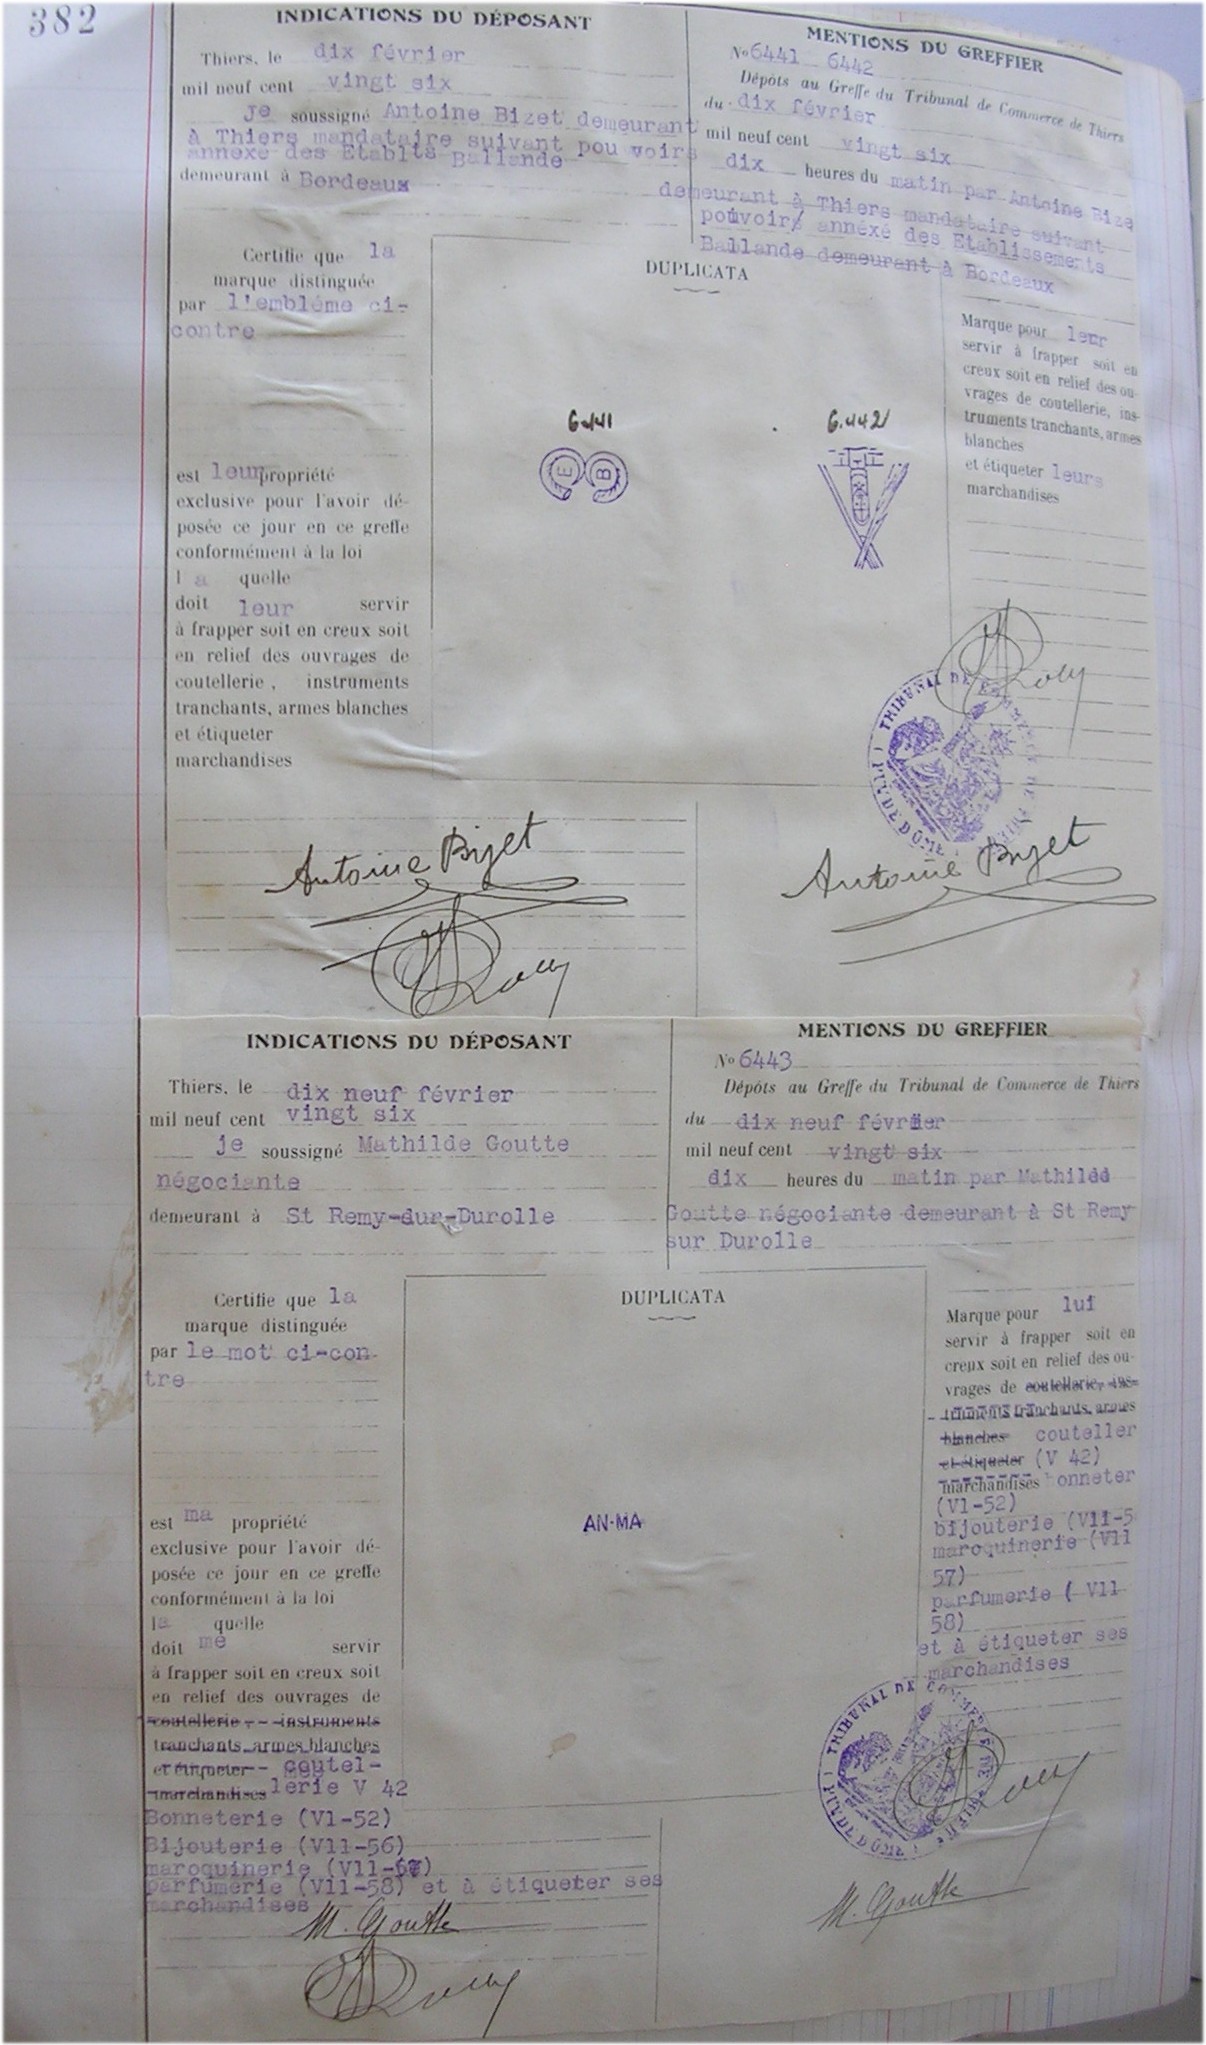 382
INDICATIONS DU DÉPOSANT
Thiers, le dix février
mil neuf cent vingt six
je soussigné Antoine Bizet demeurant
à Thiers mandataire suivant pou voirs
annexé des Etablts Ballande
demeurant à Bordeaux
MENTIONS DU GREFFIER
No 6441 6442
Dépôts au Greffe du Tribunal de Commerce de Thiers
du dix février
mil neuf cent vingt six
dix heures du matin par Antoine Bize
demeurant à Thiers mandataire suivant
pouvoir annéxé des Etablissements
Ballande demeurant à Bordeaux
Certifie que la
marque distinguée
par l'embléme ci-
contre
est leur propriété
exclusive pour l'avoir dé-
posée ce jour en ce greffe
conformément à la loi
la quelle
doit leur servir
à frapper soit en creux soit
en relief des ouvrages de
coutellerie, instruments
tranchants, armes blanches
et étiqueter
marchandises
DUPLICATA
6441
6.442
E B
Marque pour leur
servir à frapper soit en
creux soit en relief des ou-
vrages de coutellerie, ins-
truments tranchants, armes
blanches
et étiqueter leurs
marchandises
TRIBUNAL DE COMMERCE DE THIERS (PUY DE DÔME)
Antoine Bizet
Antoine Bizet
INDICATIONS DU DÉPOSANT
Thiers, le dix neuf février
mil neuf cent vingt six
je soussigné Mathilde Goutte
négociante
demeurant à St Remy-dur-Durolle
MENTIONS DU GREFFIER
No 6443
Dépôts au Greffe du Tribunal de Commerce de Thiers
du dix neuf février
mil neuf cent vingt six
dix heures du matin par Mathilde
Goutte négociante demeurant à St Remy
sur Durolle
Certifie que la
marque distinguée
par le mot ci-con
tre
est ma propriété
exclusive pour l'avoir dé-
posée ce jour en ce greffe
conformément à la loi
la quelle
doit me servir
à frapper soit en creux soit
en relief des ouvrages de
coutellerie, instruments
tranchants, armes blanches
et étiqueter coutel-
marchandises lerie V 42
Bonneterie (V1-52)
Bijouterie (V11-56)
maroquinerie (V11-57)
parfumerie (V11-58) et à étiqueter ses
marchandises
DUPLICATA
AN-MA
Marque pour lui
servir à frapper soit en
creux soit en relief des ou-
vrages de coutellerie, ins-
truments tranchants, armes
blanches couteller
et étiqueter (V 42)
marchandises bonneter
(V1-52)
bijouterie (V11-5
maroquinerie (V11
57)
parfumerie ( V11
58)
et à étiqueter ses
marchandises
TRIBUNAL DE COMMERCE DE THIERS (PUY DE DÔME)
M. Goutte
M. Goutte